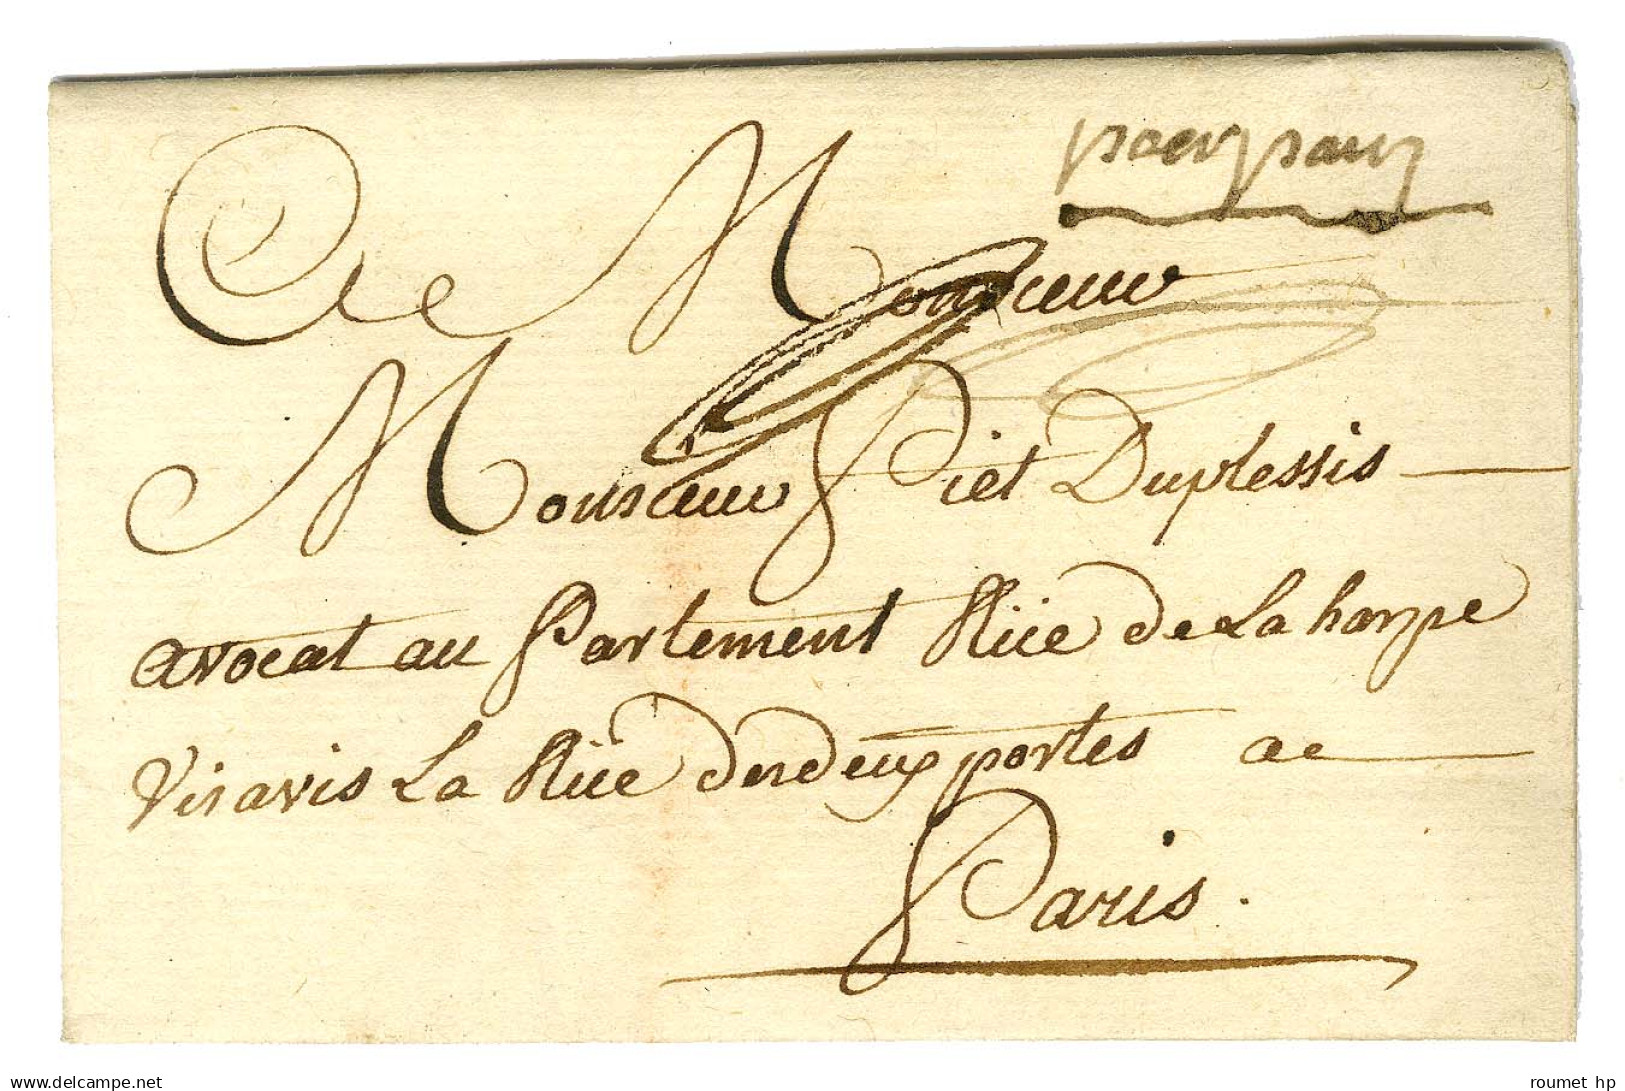 A Monsieur
Monsieur Piet Duplessis
avocat au Parlement Rüe de La harpe
Visavis La Rüe des deux portes a
Paris.
www.delcampe.net
roumet hp